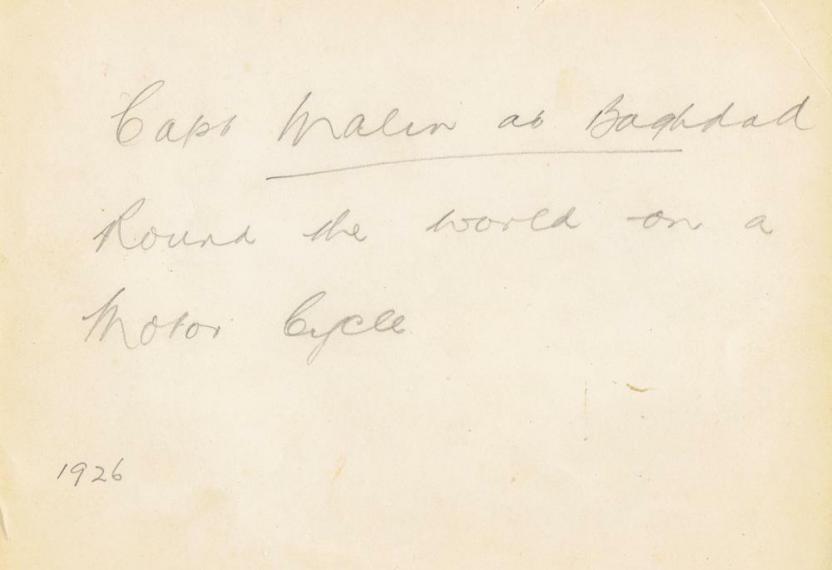 Capt Malin at Baghdad
Round the world on a
Motor Cycle
1926